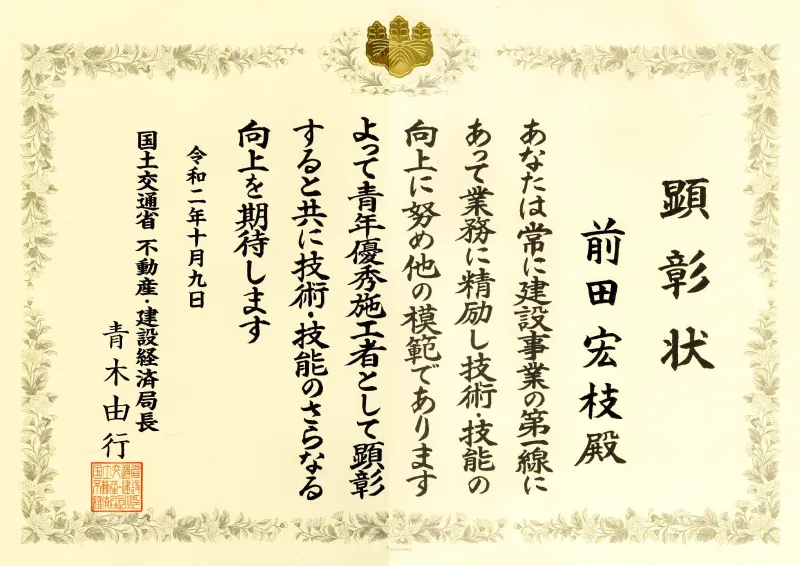 顕彰状
前田宏枝殿
あなたは常に建設事業の第一線に
あって業務に精励し技術・技能の
向上に努め他の模範であります
よって青年優秀施工者として顕彰
すると共に技術・技能のさらなる
向上を期待します
令和二年十月九日
国土交通省 不動産・建設経済局長
青木由行